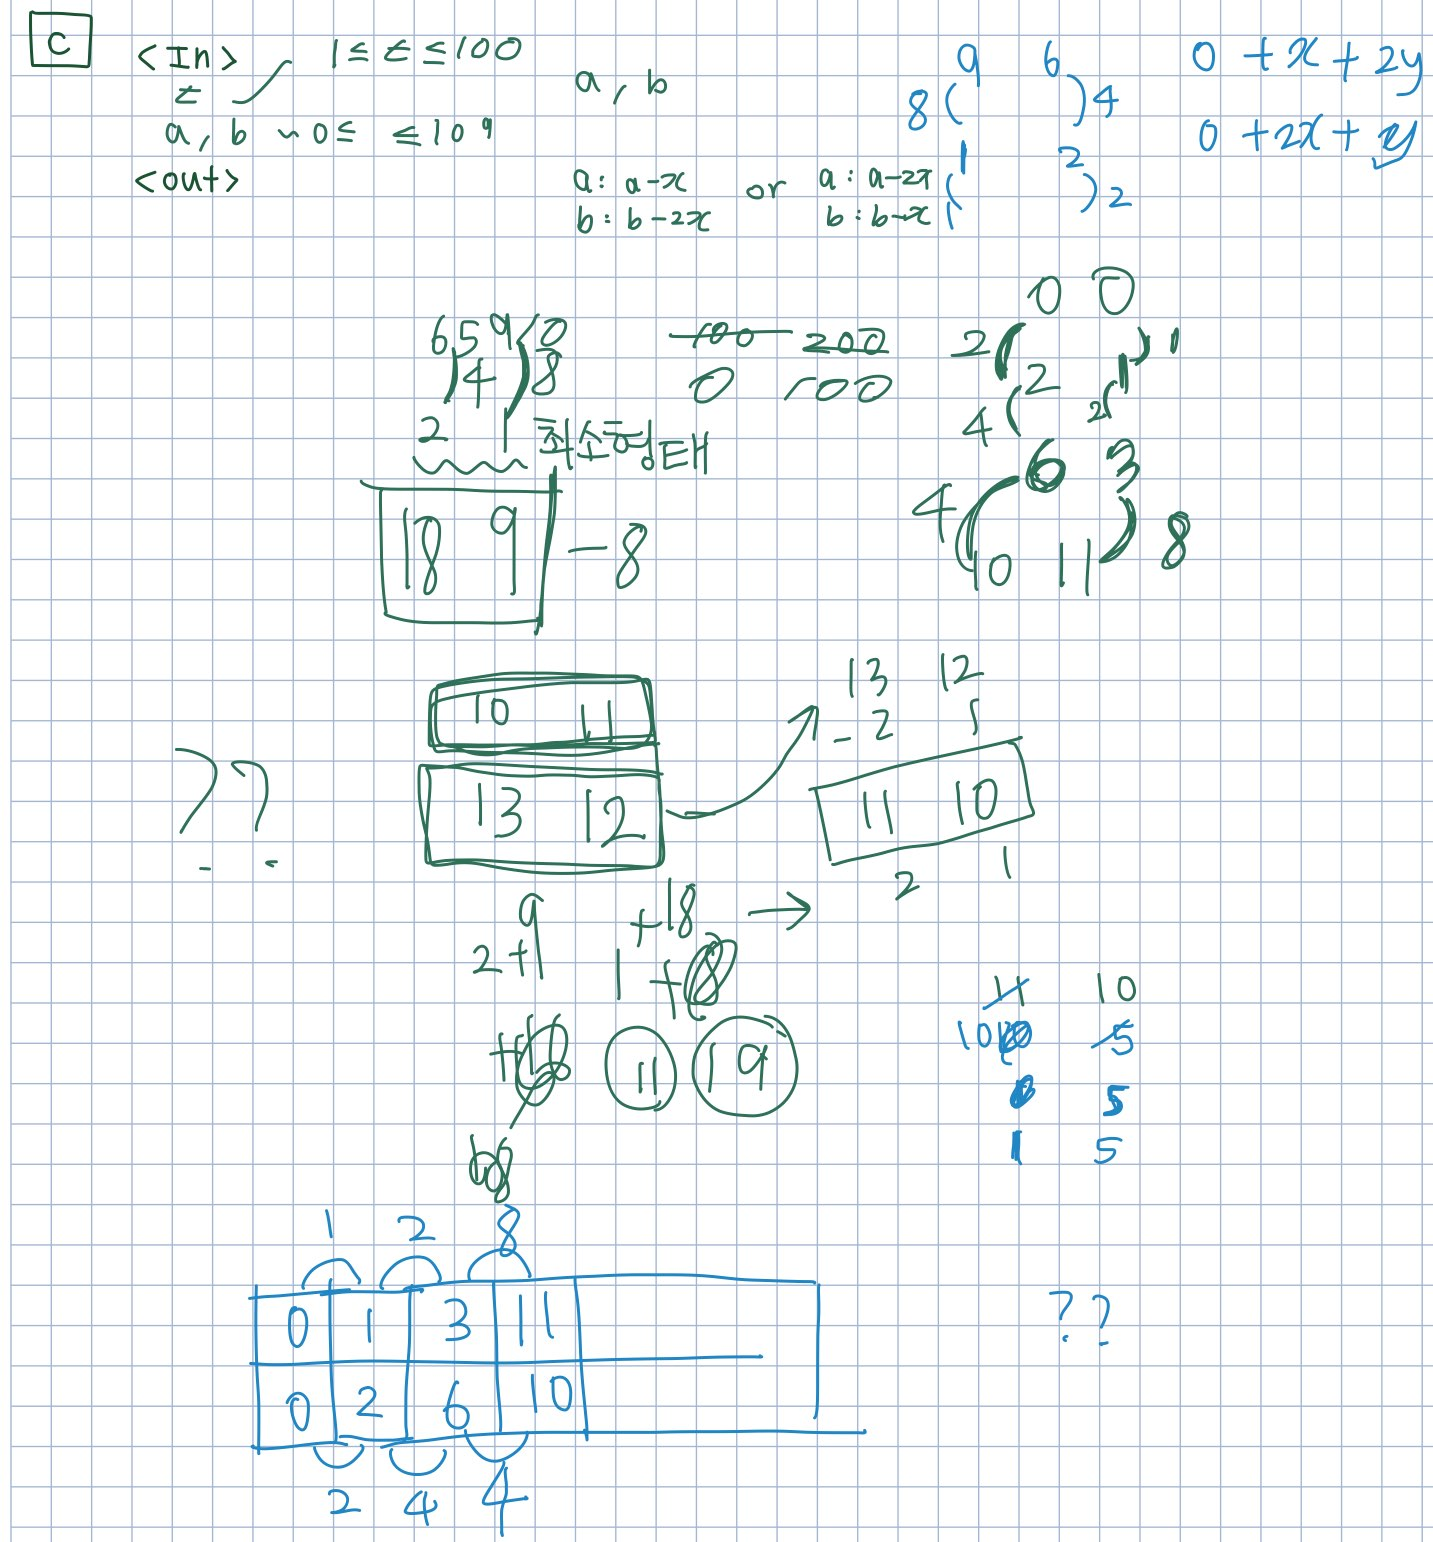 C
<In> 1 ≤ t ≤ 100
t
a, b ~ 0 ≤ ≤ 10⁹
<out>
a, b
a : a-x or a : a-2x
b : b-2x b : b-x
9 6
8 ( ) 4
1 2
1 ( ) 2
0 + x + 2y
0 + 2x + y
6 5 9 10
) 4 ) 8
2 1 최소형태
100 200
0 100
0 0
2 ( ) 1
2 1
4 ( 2 (
6 3
4 ( ) 8
10 11
18 9 - 8
10 11
13 12
? ?
13 12
- 2 1
11 10
2 1
9 + 18 →
2 + 9 1 + 8
11 19
11 10
10 5
5
1 5
1 2 8
0 1 3 11
0 2 6 10
2 4 4
? ?